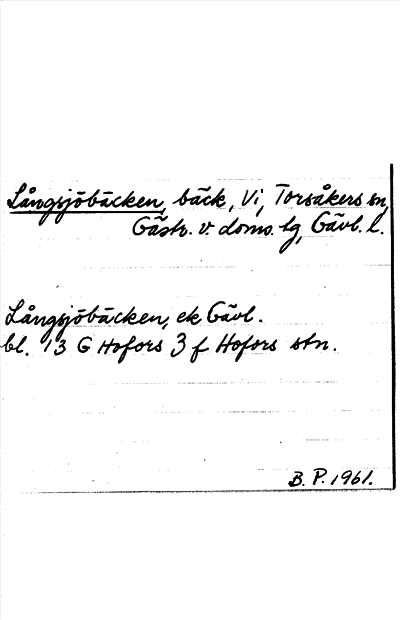 Långsjöbäcken, bäck, Vi, Torsåkers sn,
Gästr. v. doms. lg, Gävl. l.
Långsjöbäcken, ek Gävl.
bl. 13 G Hofors 3 f Hofors stn.
B. P. 1961.